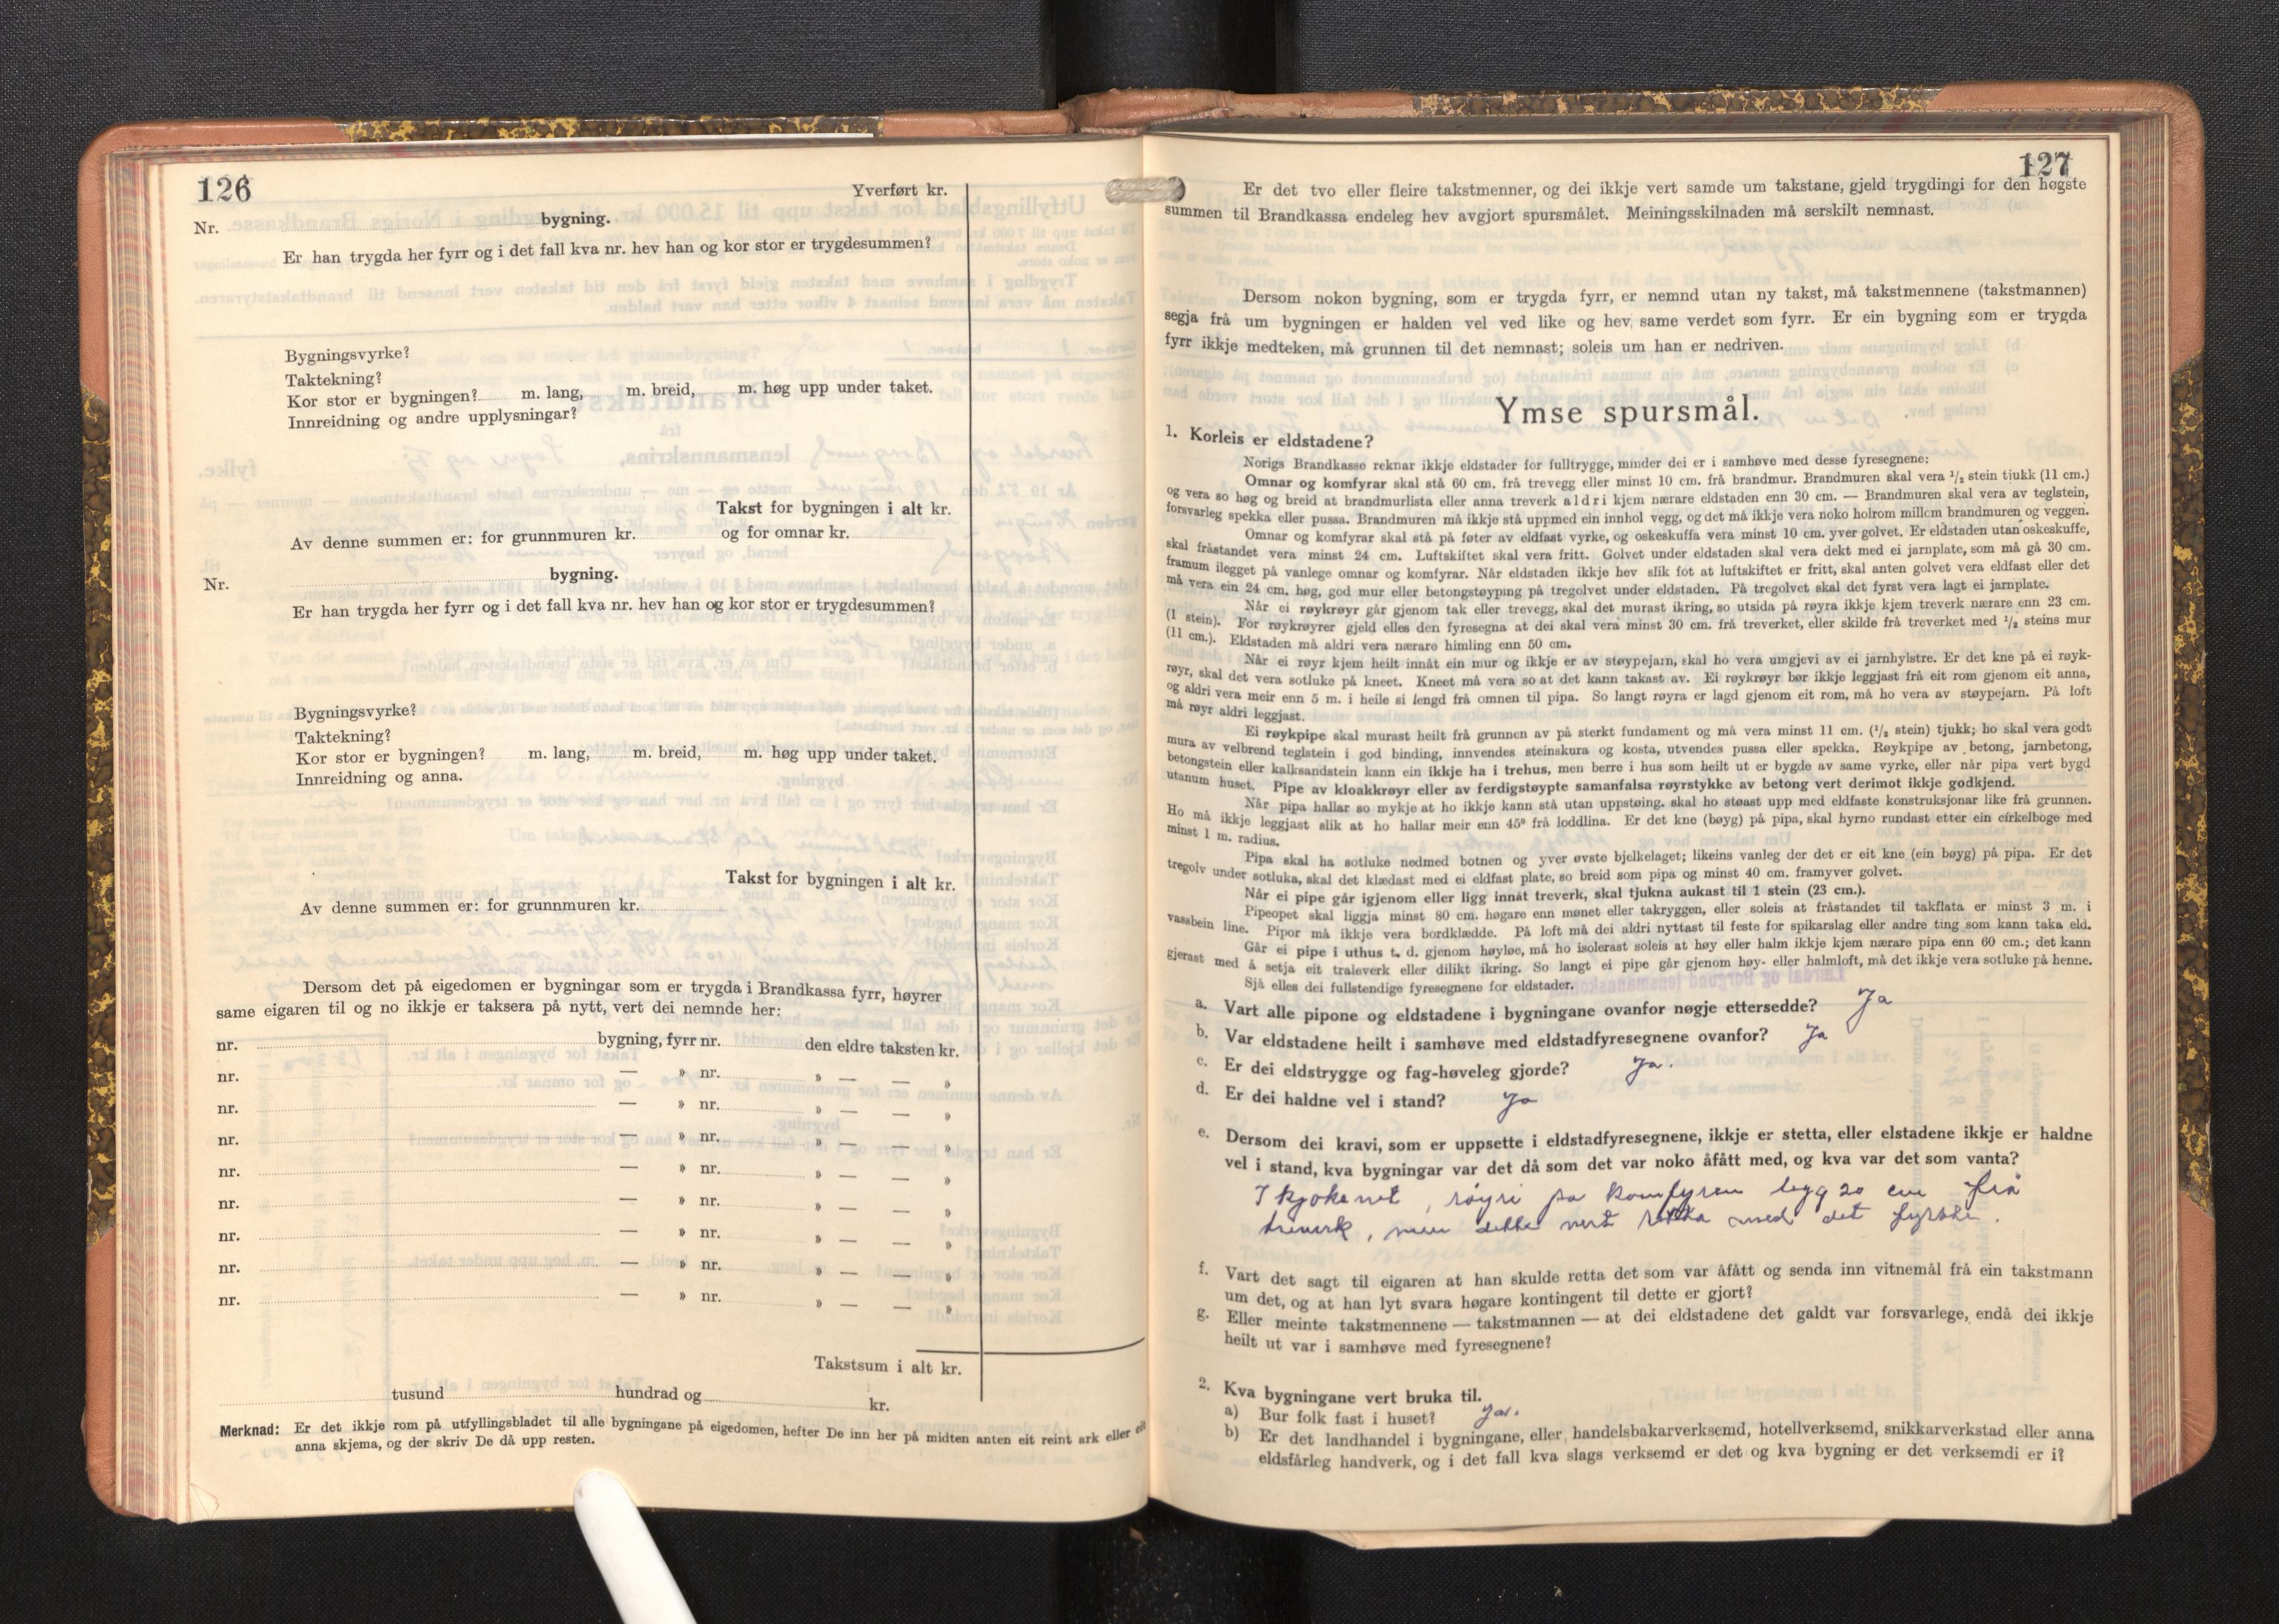 126
Yverført kr.
Nr. bygning.
Er han trygda her fyrr og i det fall kva nr. hev han og kor stor er trygdesummen?
Bygningsvyrke?
Taktekning?
Kor stor er bygningen? m. lang, m. breid, m. høg upp under taket.
Innreidning og andre upplysningar?
Takst for bygningen i alt kr.
Av denne summen er: for grunnmuren kr. og for omnar kr.
Nr. bygning.
Er han trygda her fyrr og i det fall kva nr. hev han og kor stor er trygdesummen?
Bygningsvyrke?
Taktekning?
Kor stor er bygningen? m. lang, m. breid, m. høg upp under taket.
Innreidning og anna.
Takst for bygningen i alt kr.
Av denne summen er: for grunnmuren kr.
Dersom det på eigedomen er bygningar som er trygda i Brandkassa fyrr, høyrer
same eigaren til og no ikkje er taksera på nytt, vert dei nemnde her:
nr. bygning, fyrr nr. den eldre taksten kr.
nr. — » nr. » — — »
nr. — » nr. » — — »
nr. — » nr. » — — »
nr. — » nr. » — — »
nr. — » nr. » — — »
nr. — » nr. » — — »
nr. — » nr. » — — »
nr. — » nr. » — — »
Takstsum i alt kr.
tusund hundrad og kr.
Merknad: Er det ikkje rom på utfyllingsbladet til alle bygningane på eigedomen, hefter De inn her på midten anten eit reint ark eller eit
anna skjema, og der skriv De då upp resten.
127
Er det tvo eller fleire takstmenner, og dei ikkje vert samde um takstane, gjeld trygdingi for den høgste
summen til Brandkassa endeleg hev avgjort spursmålet. Meiningsskilnaden må serskilt nemnast.
Dersom nokon bygning, som er trygda fyrr, er nemnd utan ny takst, må takstmennene (takstmannen)
segja frå um bygningen er halden vel ved like og hev same verdet som fyrr. Er ein bygning som er trygda
fyrr ikkje medteken, må grunnen til det nemnast; soleis um han er nedriven.
Ymse spursmål.
1. Korleis er eldstadene?
Norigs Brandkasse reknar ikkje eldstader for fulltrygge, minder dei er i samhøve med desse fyresegnene:
Omnar og komfyrar skal stå 60 cm. frå trevegg eller minst 10 cm. frå brandmur. Brandmuren skal vera 1/2 stein tjukk (11 cm.)
og vera so høg og breid at brandmurlista eller anna treverk aldri kjem nærare eldstaden enn 30 cm. — Brandmuren skal vera av teglstein,
forsvarleg spekka eller pussa. Brandmuren må ikkje stå uppmed ein innhol vegg, og det må ikkje vera noko holrom millom brandmuren og veggen.
Omnar og komfyrar skal stå på føter av eldfast vyrke, og oskeskuffa vera minst 10 cm. yver golvet. Er eldstaden utan oskeskuffe,
skal fråstandet vera minst 24 cm. Luftskiftet skal vera fritt. Golvet under eldstaden skal vera dekt med ei jarnplate, som må gå 30 cm.
framum ilegget på vanlege omnar og komfyrar. Når eldstaden ikkje hev slik fot at luftskiftet er fritt, skal anten golvet vera eldfast eller det
må vera ein 24 cm. høg, god mur eller betongstøyping på tregolvet under eldstaden. På tregolvet skal det fyrst vera lagt ei jarnplate.
Når ei røykrøyr går gjenom tak eller trevegg, skal det murast ikring, so utsida på røyra ikkje kjem treverk nærare enn 23 cm.
(1 stein). For røykrøyrer gjeld elles den fyresegna at dei skal vera minst 30 cm. frå treverket, eller skilde frå treverket med 1/2 steins mur
(11 cm.). Eldstaden må aldri vera nærare himling enn 50 cm.
Når ei røyr kjem heilt innåt ein mur og ikkje er av støypejarn, skal ho vera umgjevi av ei jarnhylstre. Er det kne på ei røyk-
røyr, skal det vera sotluke på kneet. Kneet må vera so at det kann takast av. Ei røykrøyr bør ikkje leggjast frå eit rom gjenom eit anna,
og aldri vera meir enn 5 m. i heile si lengd frå omnen til pipa. So langt røyra er lagd gjenom eit rom, må ho vera av støypejarn. På loft
må røyr aldri leggjast.
Ei røykpipe skal murast heilt frå grunnen av på sterkt fundament og må vera minst 11 cm. (1/2 stein) tjukk; ho skal vera godt
mura av velbrend teglstein i god binding, innvendes steinskura og kosta, utvendes pussa eller spekka. Røykpipe av betong, jarnbetong,
betongstein eller kalksandstein kann ein ikkje ha i trehus, men berre i hus som heilt ut er bygde av same vyrke, eller når pipa vert bygd
utanum huset. Pipe av kloakkrøyr eller av ferdigstøypte samanfalsa røyrstykke av betong vert derimot ikkje godkjend.
Når pipa hallar so mykje at ho ikkje kann stå utan uppstøing, skal ho støast upp med eldfaste konstruksjonar like frå grunnen.
Ho må ikkje leggjast slik at ho hallar meir enn 45° frå loddlina. Er det kne (bøyg) på pipa, skal hyrno rundast etter ein cirkelboge med
minst 1 m. radius.
Pipa skal ha sotluke nedmed botnen og yver øvste bjelkelaget; likeins vanleg der det er eit kne (ein bøyg) på pipa. Er det
tregolv under sotluka, skal det klædast med ei eldfast plate, so breid som pipa og minst 40 cm. framyver golvet.
Når ei pipe går igjenom eller ligg innåt treverk, skal tjukna aukast til 1 stein (23 cm.).
Pipeopet skal liggja minst 80 cm. høgare enn mønet eller takryggen, eller soleis at fråstandet til takflata er minst 3 m. i
vassbein line. Pipor må ikkje vera bordklædde. På loft må dei aldri nyttast til feste for spikarslag eller andre ting som kann taka eld.
Går ei pipe i uthus t. d. gjenom høyloe, må ho isolerast soleis at høy eller halm ikkje kjem nærare pipa enn 60 cm.; det kann
gjerast med å setja eit traleverk eller dilikt ikring. So langt ei pipe går gjenom høy- eller halmloft, må det ikkje vera sotluke på henne.
Sjå elles dei fullstendige fyresegnene for eldstader.
a. Vart alle pipone og eldstadene i bygningane ovanfor nøgje ettersedde? Ja
b. Var eldstadene heilt i samhøve med eldstadfyresegnene ovanfor? Ja
c. Er dei eldstrygge og fag-høveleg gjorde? Ja.
d. Er dei haldne vel i stand? Ja
e. Dersom dei kravi, som er uppsette i eldstadfyresegnene, ikkje er stetta, eller elstadene ikkje er haldne
vel i stand, kva bygningar var det då som det var noko åfått med, og kva var det som vanta?
I kjøkenet, røyri på komfyren legg 20 cm frå
treverk, men dette vert retta med det fyrste.
f. Vart det sagt til eigaren at han skulde retta det som var åfått og senda inn vitnemål frå ein takstmann
um det, og at han lyt svara høgare kontingent til dette er gjort?
g. Eller meinte takstmennene — takstmannen — at dei eldstadene det galdt var forsvarlege, endå dei ikkje
heilt ut var i samhøve med fyresegnene?
2. Kva bygningane vert bruka til.
a) Bur folk fast i huset? Ja.
b) Er det landhandel i bygningane, eller handelsbakarverksemd, hotellverksemd, snikkarverkstad eller anna
eldsfårleg handverk, og i det fall kva slags verksemd er det og kva bygning er det verksemdi er i?